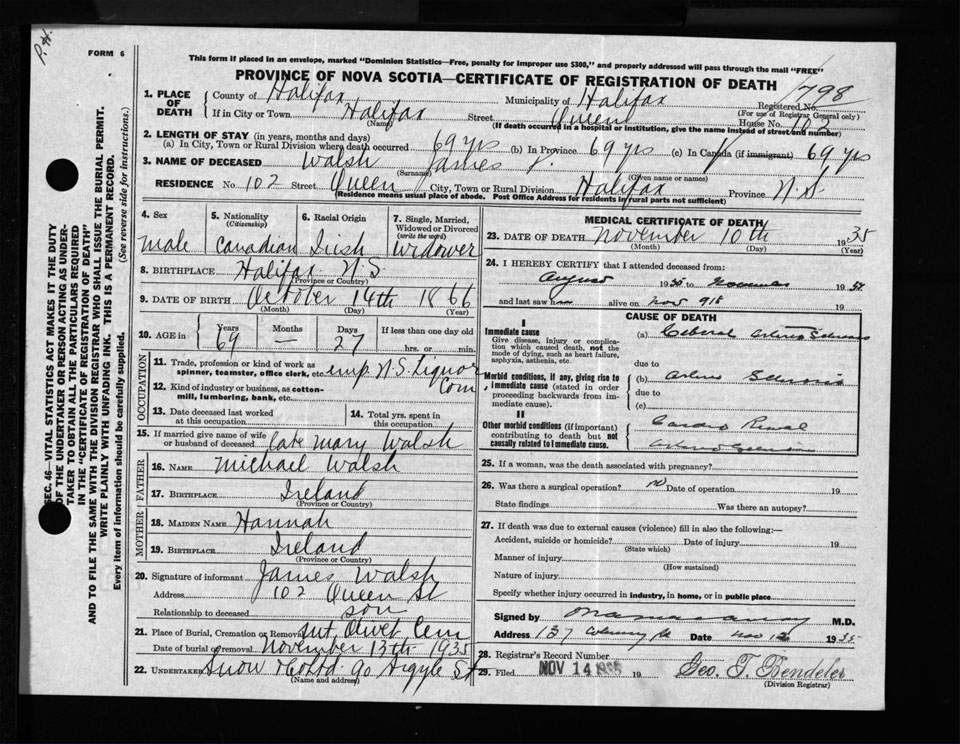 P.H.
FORM 6
This form if placed in an envelope, marked "Dominion Statistics—Free, penalty for improper use $300," and properly addressed will pass through the mail "FREE"
PROVINCE OF NOVA SCOTIA—CERTIFICATE OF REGISTRATION OF DEATH
798
1. PLACE OF DEATH
County of Halifax Municipality of Halifax Registered No.
(For use of Registrar General only)
If in City or Town Halifax Street Queen House No. 102
(Name) (If death occurred in a hospital or institution, give the name instead of street and number)
2. LENGTH OF STAY (in years, months and days)
(a) In City, Town or Rural Division where death occurred 69 yrs (b) In Province 69 yrs (c) In Canada (if immigrant) 69 yrs
3. NAME OF DECEASED Walsh James
(Surname) (Given name or names)
RESIDENCE No 102 Street Queen City, Town or Rural Division Halifax Province N.S
(Residence means usual place of abode. Post Office Address for residents in rural parts not sufficient)
4. Sex male
5. Nationality (Citizenship) Canadian
6. Racial Origin Irish
7. Single, Married, Widowed or Divorced (write the word) Widower
8. BIRTHPLACE Halifax N.S
(Province or Country)
9. DATE OF BIRTH October 14th 1866
(Month) (Day) (Year)
10. AGE in Years 69 Months — Days 27 If less than one day old
hrs. or min.
OCCUPATION
11. Trade, profession or kind of work as spinner, teamster, office clerk, etc. emp. N.S. Liquor Com
12. Kind of industry or business, as cotton-mill, lumbering, bank, etc.
13. Date deceased last worked at this occupation
14. Total yrs. spent in this occupation
15. If married give name of wife or husband of deceased late Mary Walsh
FATHER
16. NAME Michael Walsh
17. BIRTHPLACE Ireland
(Province or Country)
MOTHER
18. MAIDEN NAME Hannah
19. BIRTHPLACE Ireland
(Province or Country)
20. Signature of informant James Walsh
Address 102 Queen St
Relationship to deceased son
21. Place of Burial, Cremation or Removal Mt. Olivet Cem
Date of burial or removal November 13th 1935
22. UNDERTAKER Snow & Co Ltd 90 Argyle St
(Name and address)
MEDICAL CERTIFICATE OF DEATH
23. DATE OF DEATH November 10th 1935
(Month) (Day) (Year)
24. I HEREBY CERTIFY that I attended deceased from:
August 19 to November 19
and last saw him alive on Nov 9th 19
CAUSE OF DEATH
I
Immediate cause
Give disease, injury or complication which caused death, not the mode of dying, such as heart failure, asphyxia, asthenia, etc.
(a) Cerebral
due to
Morbid conditions, if any, giving rise to immediate cause (stated in order proceeding backwards from immediate cause).
(b)
due to
(c)
II
Other morbid conditions (if important) contributing to death but not causally related to immediate cause.
Cardio Renal
25. If a woman, was the death associated with pregnancy?
26. Was there a surgical operation? no Date of operation 19
State findings Was there an autopsy?
27. If death was due to external causes (violence) fill in also the following:—
Accident, suicide or homicide? Date of injury 19
(State which)
Manner of injury
(How sustained)
Nature of injury
Specify whether injury occurred in industry, in home, or in public place
Signed by M.D.
Address 137 Date Nov 12 1935
28. Registrar's Record Number
29. Filed NOV 14 1935 19 Geo. T. Bendeler
(Division Registrar)
SEC. 46—VITAL STATISTICS ACT MAKES IT THE DUTY OF THE UNDERTAKER OR PERSON ACTING AS UNDERTAKER TO OBTAIN ALL THE PARTICULARS REQUIRED IN THE "CERTIFICATE OF REGISTRATION OF DEATH"
AND TO FILE THE SAME WITH THE DIVISION REGISTRAR WHO SHALL ISSUE THE BURIAL PERMIT.
WRITE PLAINLY WITH UNFADING INK. THIS IS A PERMANENT RECORD.
Every item of information should be carefully supplied. (See reverse side for instructions.)